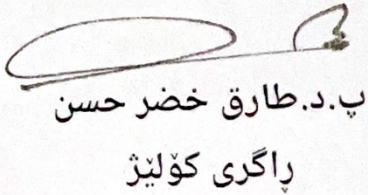 پ.د.طارق خضر حسن
ڕاگری کۆلێژ